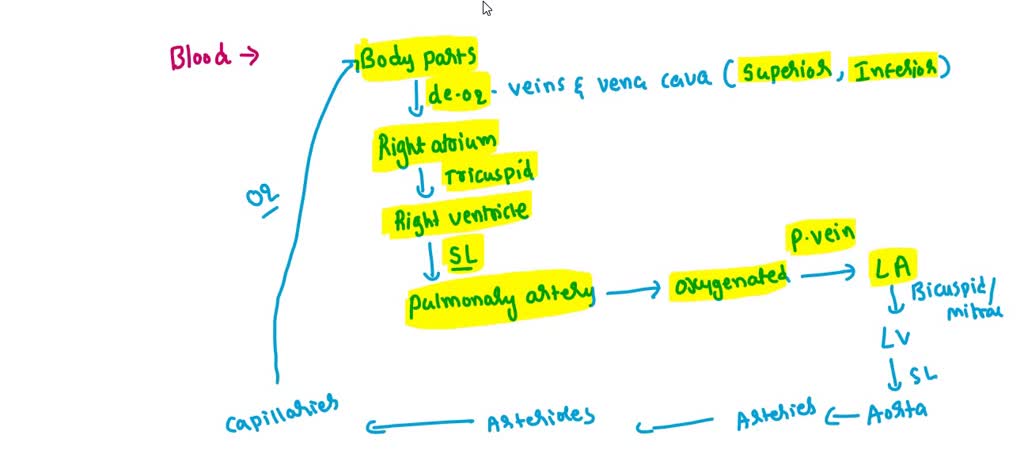 Blood →
Body parts
de-O2 - veins & vena cava (Superior, Inferior)
Right atrium
Tricuspid
Right ventricle
SL
O2
P.vein
Pulmonary artery → oxygenated → LA
Bicuspid/
mitral
LV
SL
Capillaries ← Arterioles ← Arteries ← Aorta